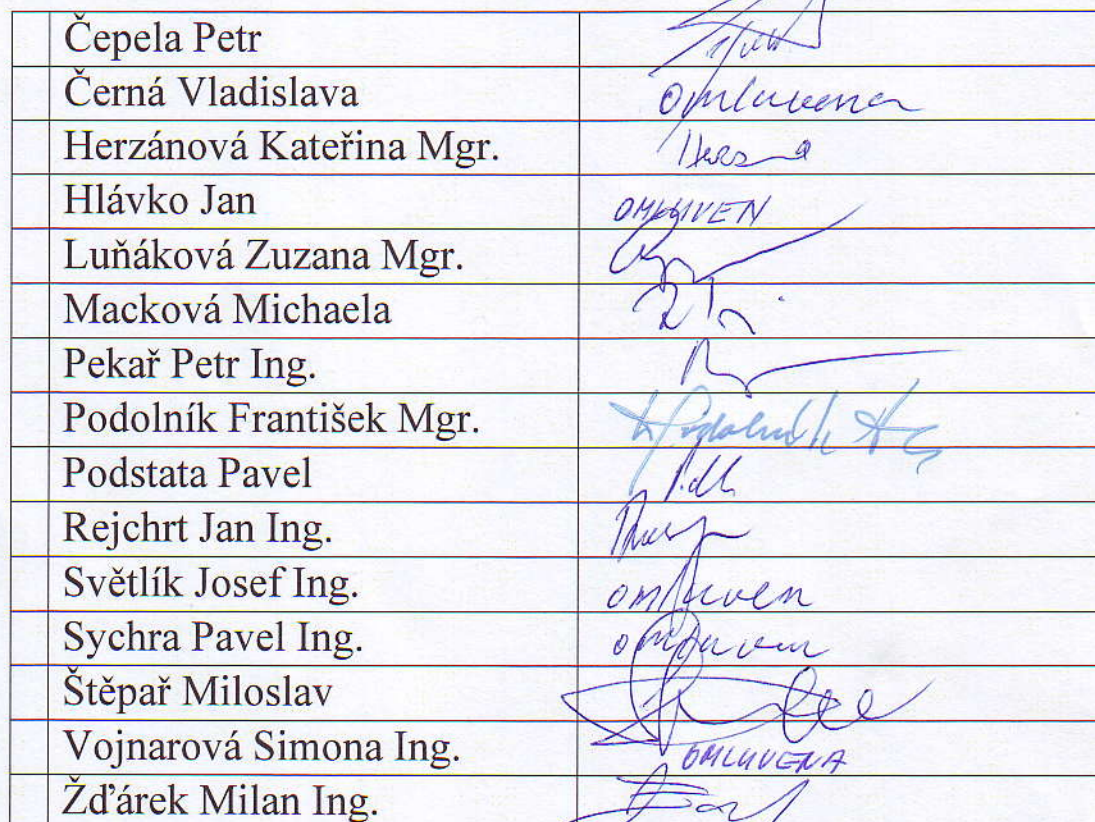 Čepela Petr
Černá Vladislava omluvena
Herzánová Kateřina Mgr.
Hlávko Jan OMLUVEN
Luňáková Zuzana Mgr.
Macková Michaela
Pekař Petr Ing.
Podolník František Mgr. Podolník
Podstata Pavel
Rejchrt Jan Ing.
Světlík Josef Ing. omluven
Sychra Pavel Ing. omluven
Štěpař Miloslav
Vojnarová Simona Ing. OMLUVENA
Žďárek Milan Ing.